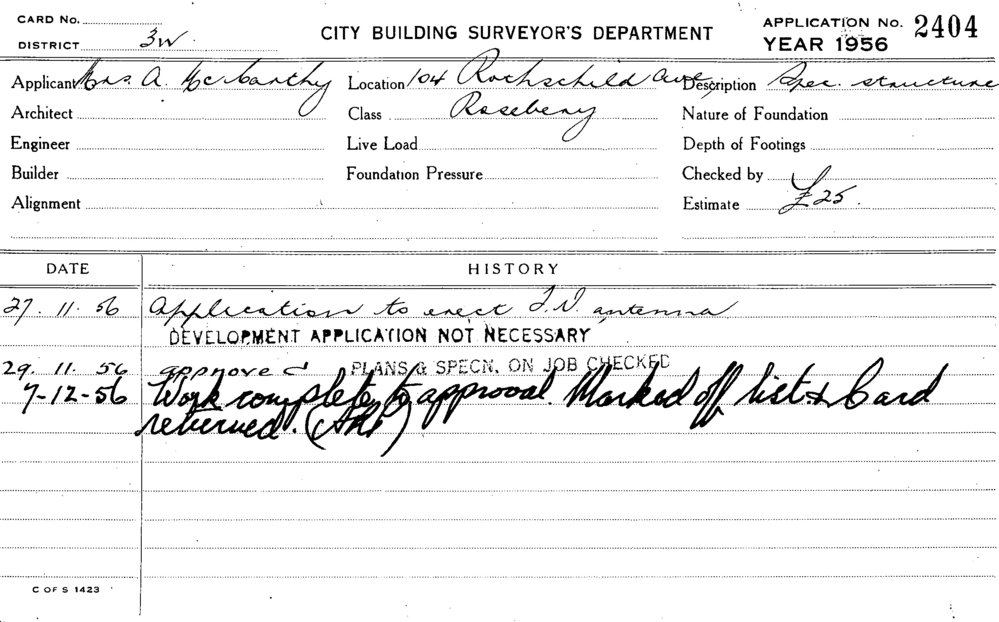 CARD No.
DISTRICT 3W
CITY BUILDING SURVEYOR'S DEPARTMENT
APPLICATION No. 2404
YEAR 1956
Applicant Mrs. A. McCarthy
Location 104 Rothschild Ave,
Description Spec. structure
Architect
Class Rosebery
Nature of Foundation
Engineer
Live Load
Depth of Footings
Builder
Foundation Pressure
Checked by
Alignment
Estimate £25.
DATE
HISTORY
27. 11. 56 Application to erect T.V. antenna
DEVELOPMENT APPLICATION NOT NECESSARY
29. 11. 56 approved PLANS & SPECN. ON JOB CHECKED
7-12-56 Work complete to approval. Marked off list & Card
returned.
C OF S 1423